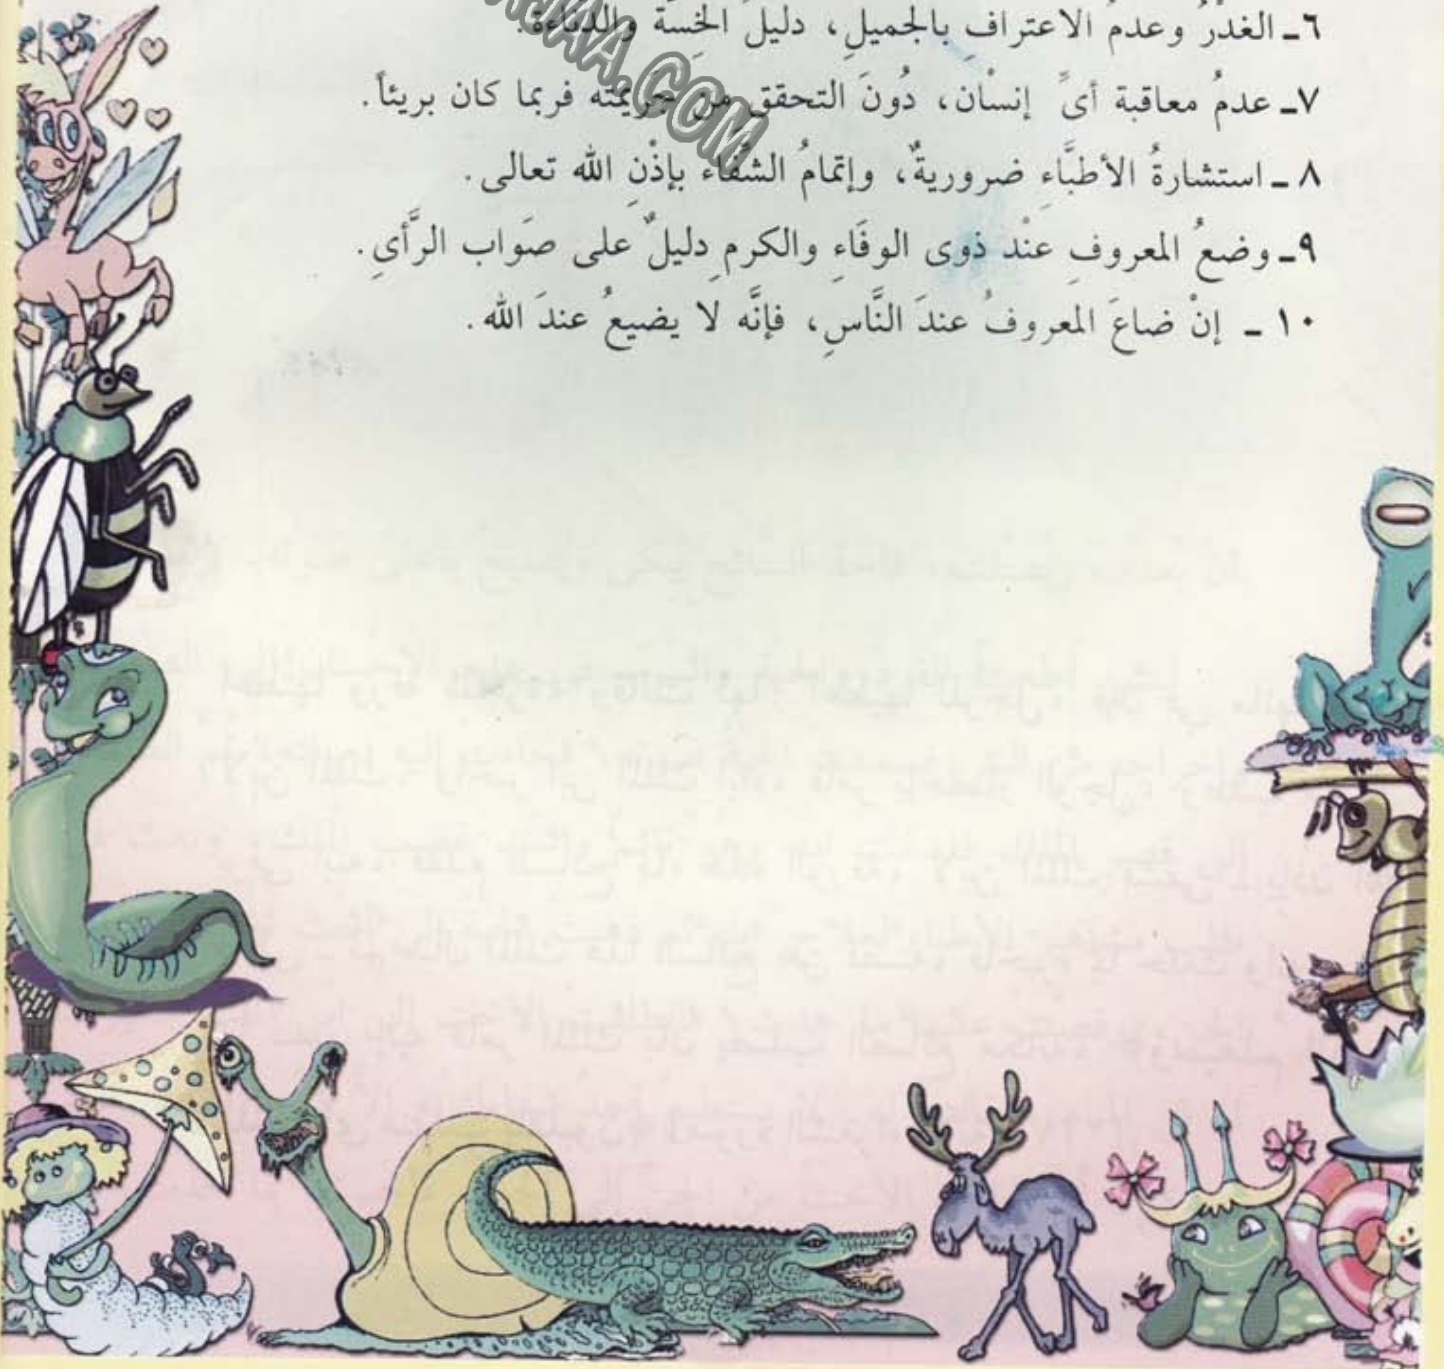 ٦ـ الغدْرُ وعدمُ الاعترافِ بالجميلِ، دليلُ الخِسَّة والدناءة
٧ـ عدمُ معاقبة أىِّ إنسْان، دُونَ التحقق من جَريمته فربما كان بريئاً.
٨ ـ استشارةُ الأطبَّاءِ ضروريةٌ، وإتمامُ الشفاء بإذْنِ الله تعالى.
٩ـ وضعُ المعروفِ عنْد ذوى الوفَاءِ والكرمِ دليلٌ على صوَاب الرَّأىِ.
١٠ ـ إنْ ضاعَ المعروفُ عندَ النَّاسِ، فإنَّه لا يضيعُ عندَ الله.
.COM